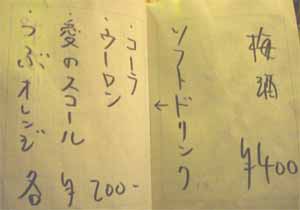 梅酒 ¥400
ソフトドリンク
↓
・コーラ
・ウーロン
・愛のスコール
・つぶオレンジ
各 ¥200-